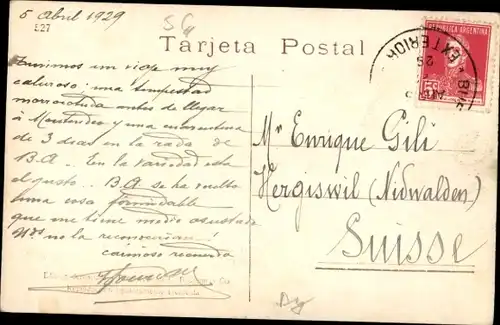 5 Abril 1929
527
Tarjeta Postal
REPUBLICA ARGENTINA
EXTERIOR
Tuvimos un viaje muy
caluroso: una tempestad
antes de llegar
á Montevideo y una cuarentena
de 3 dias en la rada de
B.A. En la variedad esta
el gusto. B.A se ha vuelto
una cosa formidable
que me tiene medio asustado
no la reconocerian!
cariñoso recuerdo
Mr Enrique Gili
Hergiswil (Nidwalden)
Suisse